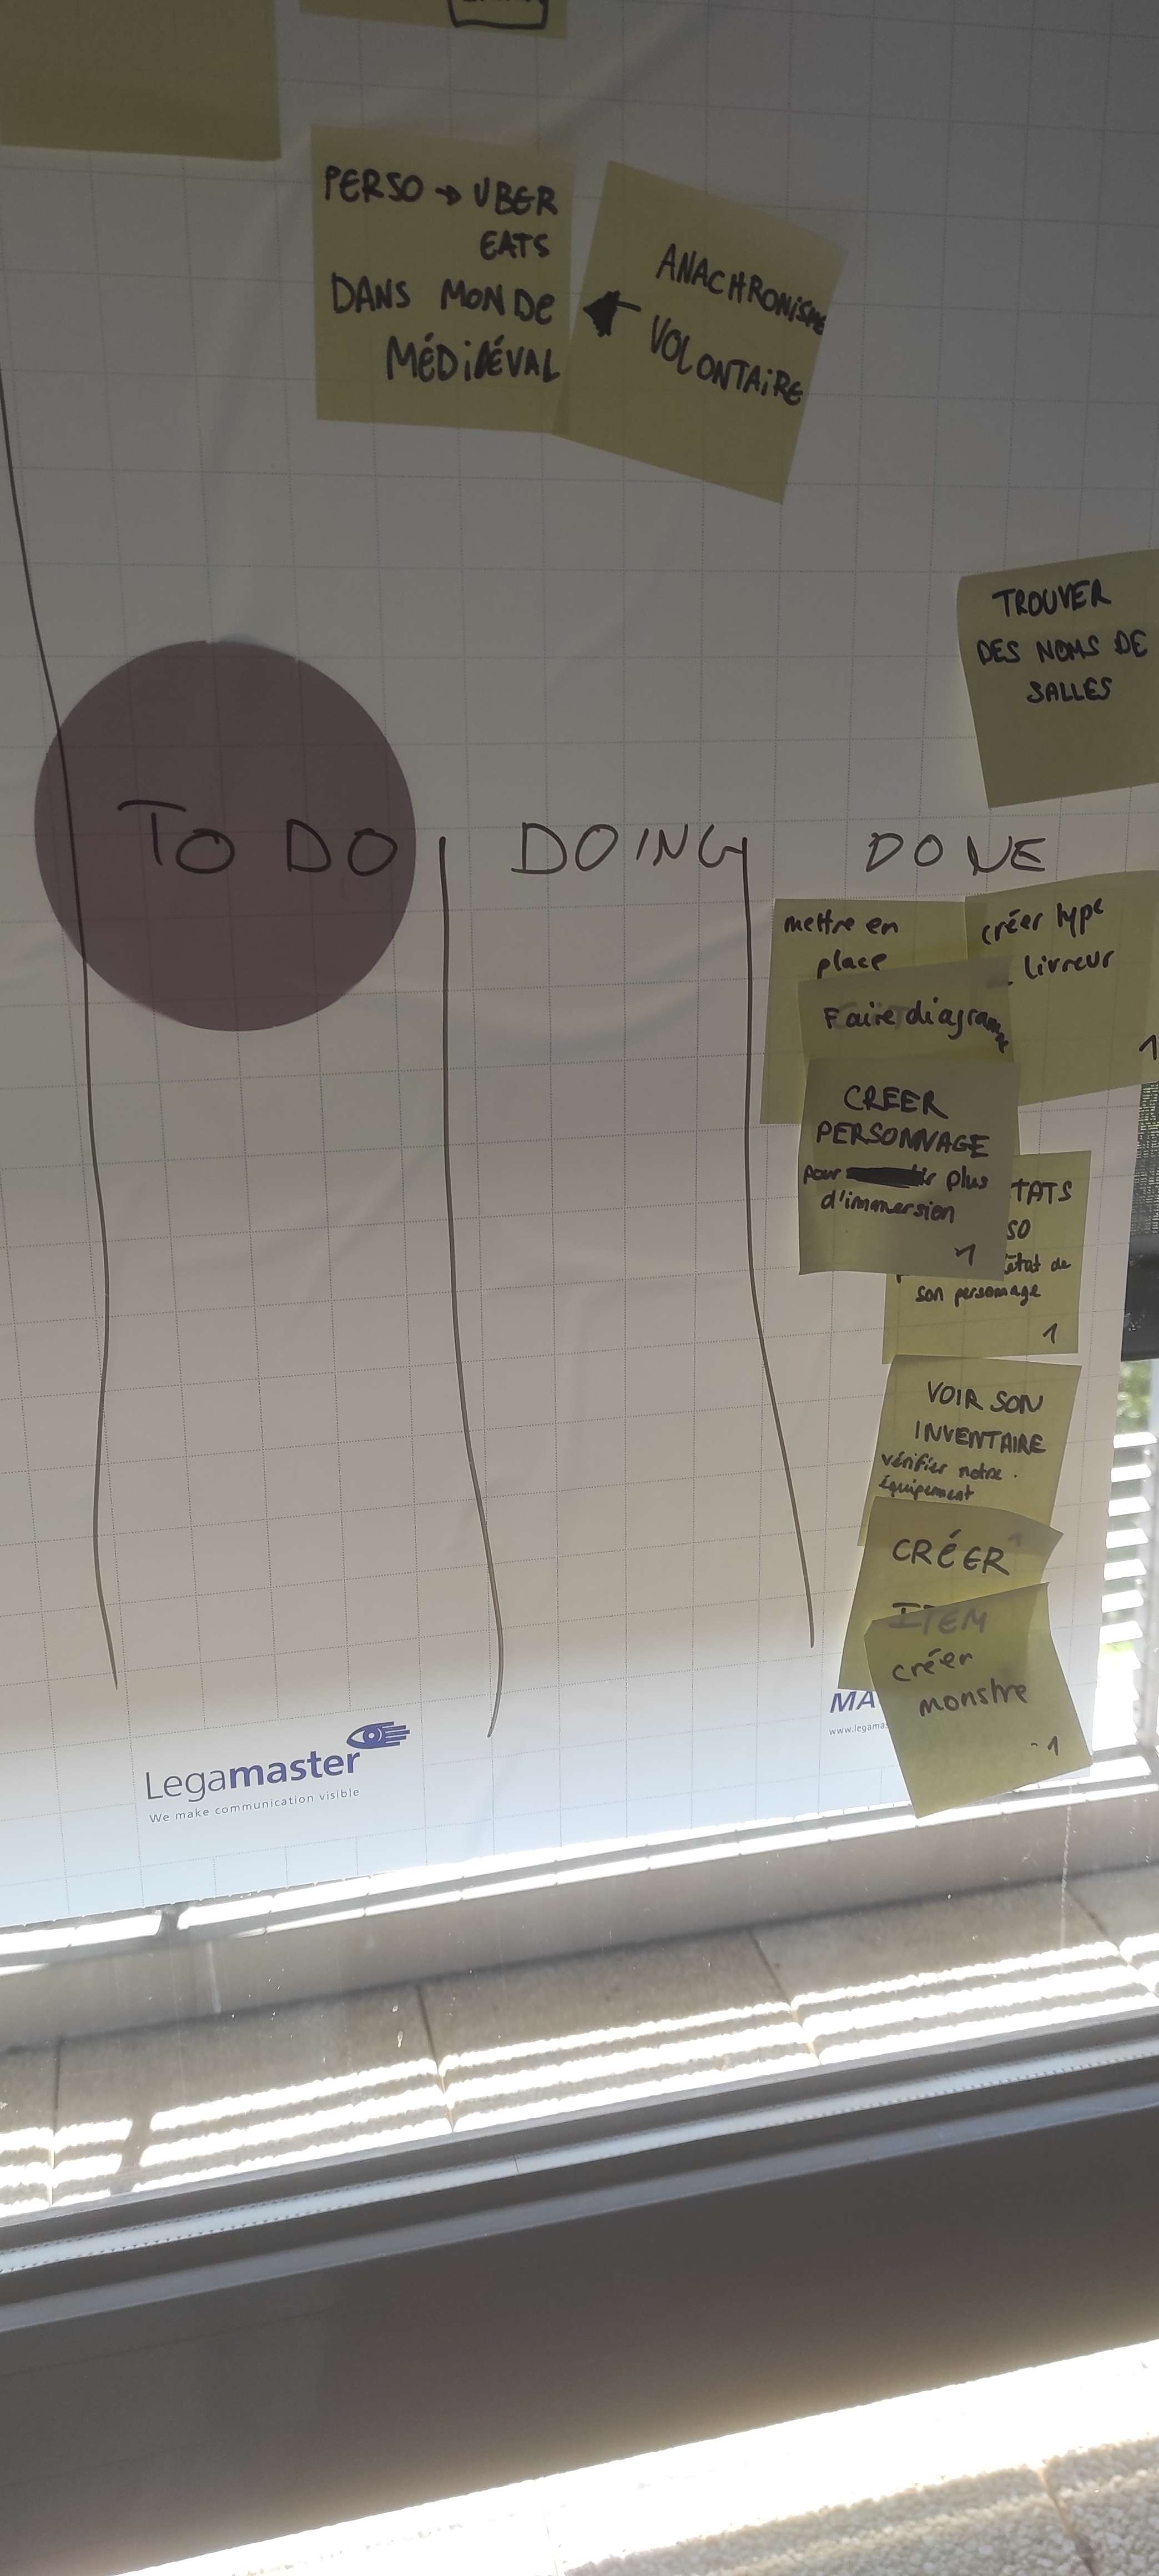 PERSO → UBER
EATS
DANS MONDE
MÉDIÉVAL
ANACHRONISME
VOLONTAIRE
TROUVER
DES NOMS DE
SALLES
TO DO
DOING
DONE
mettre en
place
créer type
livreur
1
Faire diagramme
CREER
PERSONNAGE
pour plus
d'immersion
1
TATS
SO
état de
son personnage
1
VOIR SON
INVENTAIRE
vérifier notre
équipement
CRÉER
1
ITEM
créer
monstre
-1
MA
www.legamas
Legamaster
We make communication visible